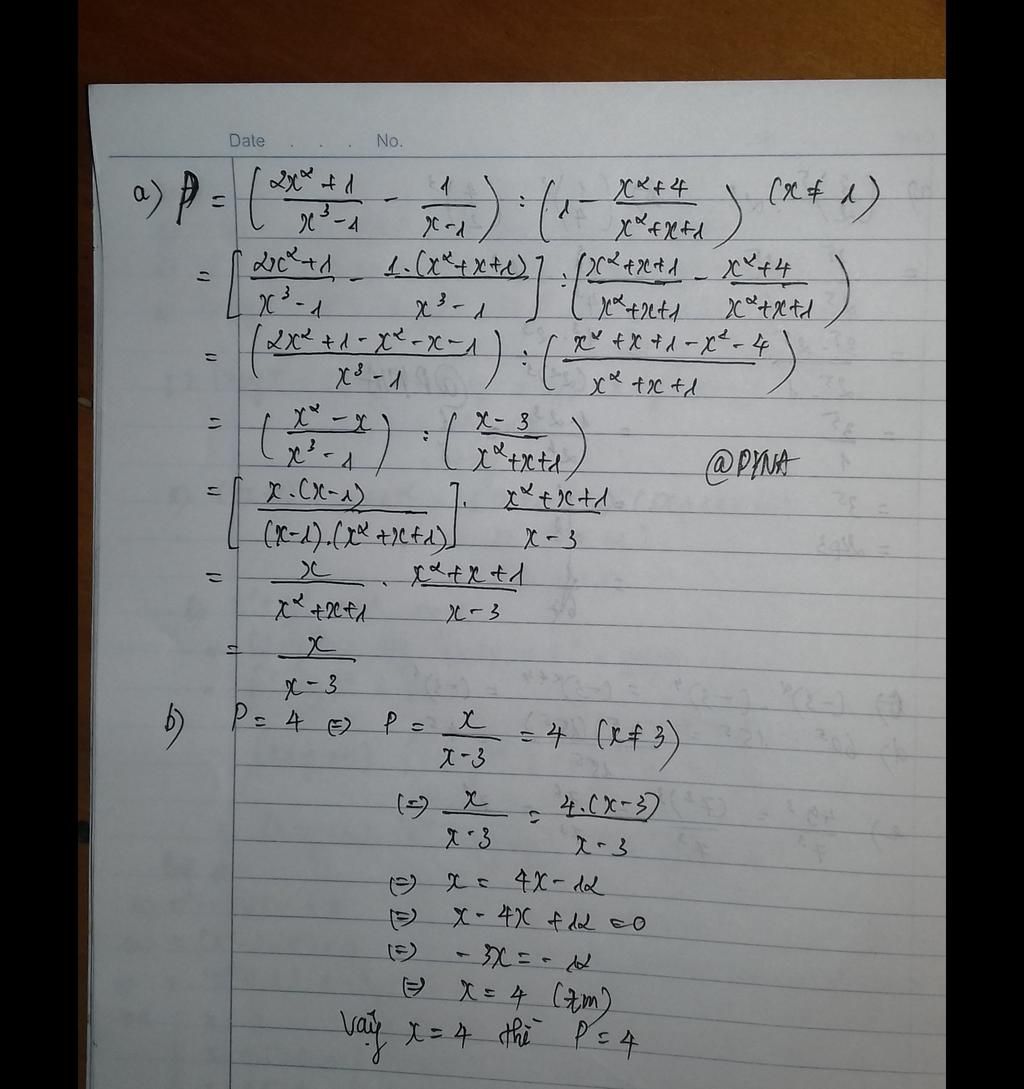 Date . . . No.
a) P = ( (2x²+1)/(x³-1) - 1/(x-1) ) : ( 1 - (x²+4)/(x²+x+1) ) (x ≠ 1)
= [ (2x²+1)/(x³-1) - 1.(x²+x+1)/(x³-1) ] : ( (x²+x+1)/(x²+x+1) - (x²+4)/(x²+x+1) )
= ( (2x²+1-x²-x-1)/(x³-1) ) : ( (x²+x+1-x²-4)/(x²+x+1) )
= ( (x²-x)/(x³-1) ) : ( (x-3)/(x²+x+1) )
@PYNA
= [ x.(x-1)/((x-1).(x²+x+1)) ] . (x²+x+1)/(x-3)
= x/(x²+x+1) . (x²+x+1)/(x-3)
= x/(x-3)
b) P = 4 (=) P = x/(x-3) = 4 (x ≠ 3)
(=) x/(x-3) = 4.(x-3)/(x-3)
(=) x = 4x - 12
(=) x - 4x + 12 = 0
(=) -3x = -12
(=) x = 4 (tm)
Vậy x = 4 thì P = 4